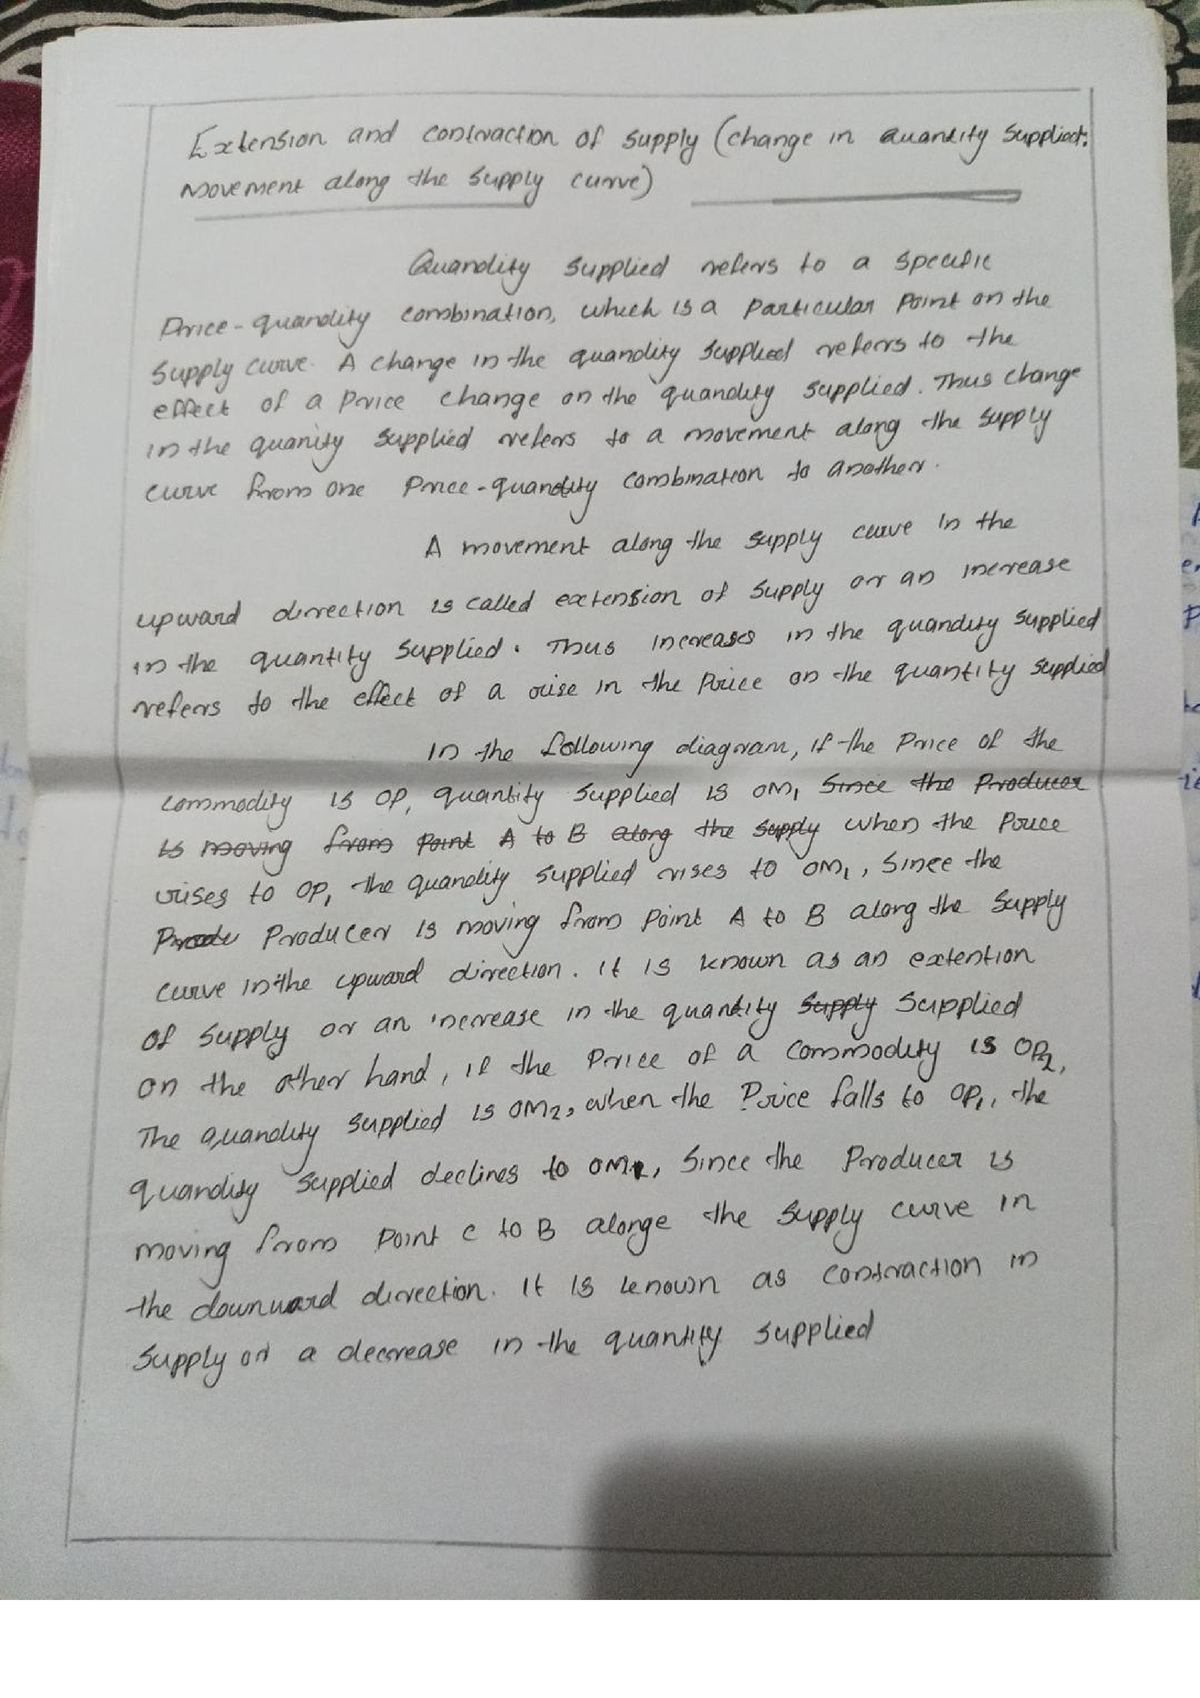 Extension and contraction of supply (change in quantity supplied:
movement along the supply curve)
Quandity supplied refers to a specific
Price-quandity combination, which is a particular point on the
supply curve. A change in the quandity supplied refers to the
effect of a price change on the quandity supplied. Thus change
in the quanity supplied refers to a movement along the supply
curve from one price-quandity combination to another.
A movement along the supply curve in the
upward direction is called extension of supply or an increase
in the quantity supplied. Thus increases in the quandity supplied
refers to the effect of a rise in the price on the quantity supplied
In the following diagram, if the price of the
commodity is OP, quantity supplied is OM, since the producer
is moving from point A to B along the supply when the price
rises to OP, the quandity supplied rises to OM1, since the
Produ Producer is moving from point A to B along the supply
curve in the upward direction. it is known as an extention
of supply or an increase in the quantity supply supplied
on the other hand, if the price of a commodity is OP2,
The quandity supplied is OM2, when the price falls to OP1, the
quandity supplied declines to OM1, since the producer is
moving from point C to B alonge the supply curve in
the downward direction. It is known as contraction in
supply or a decrease in the quantity supplied